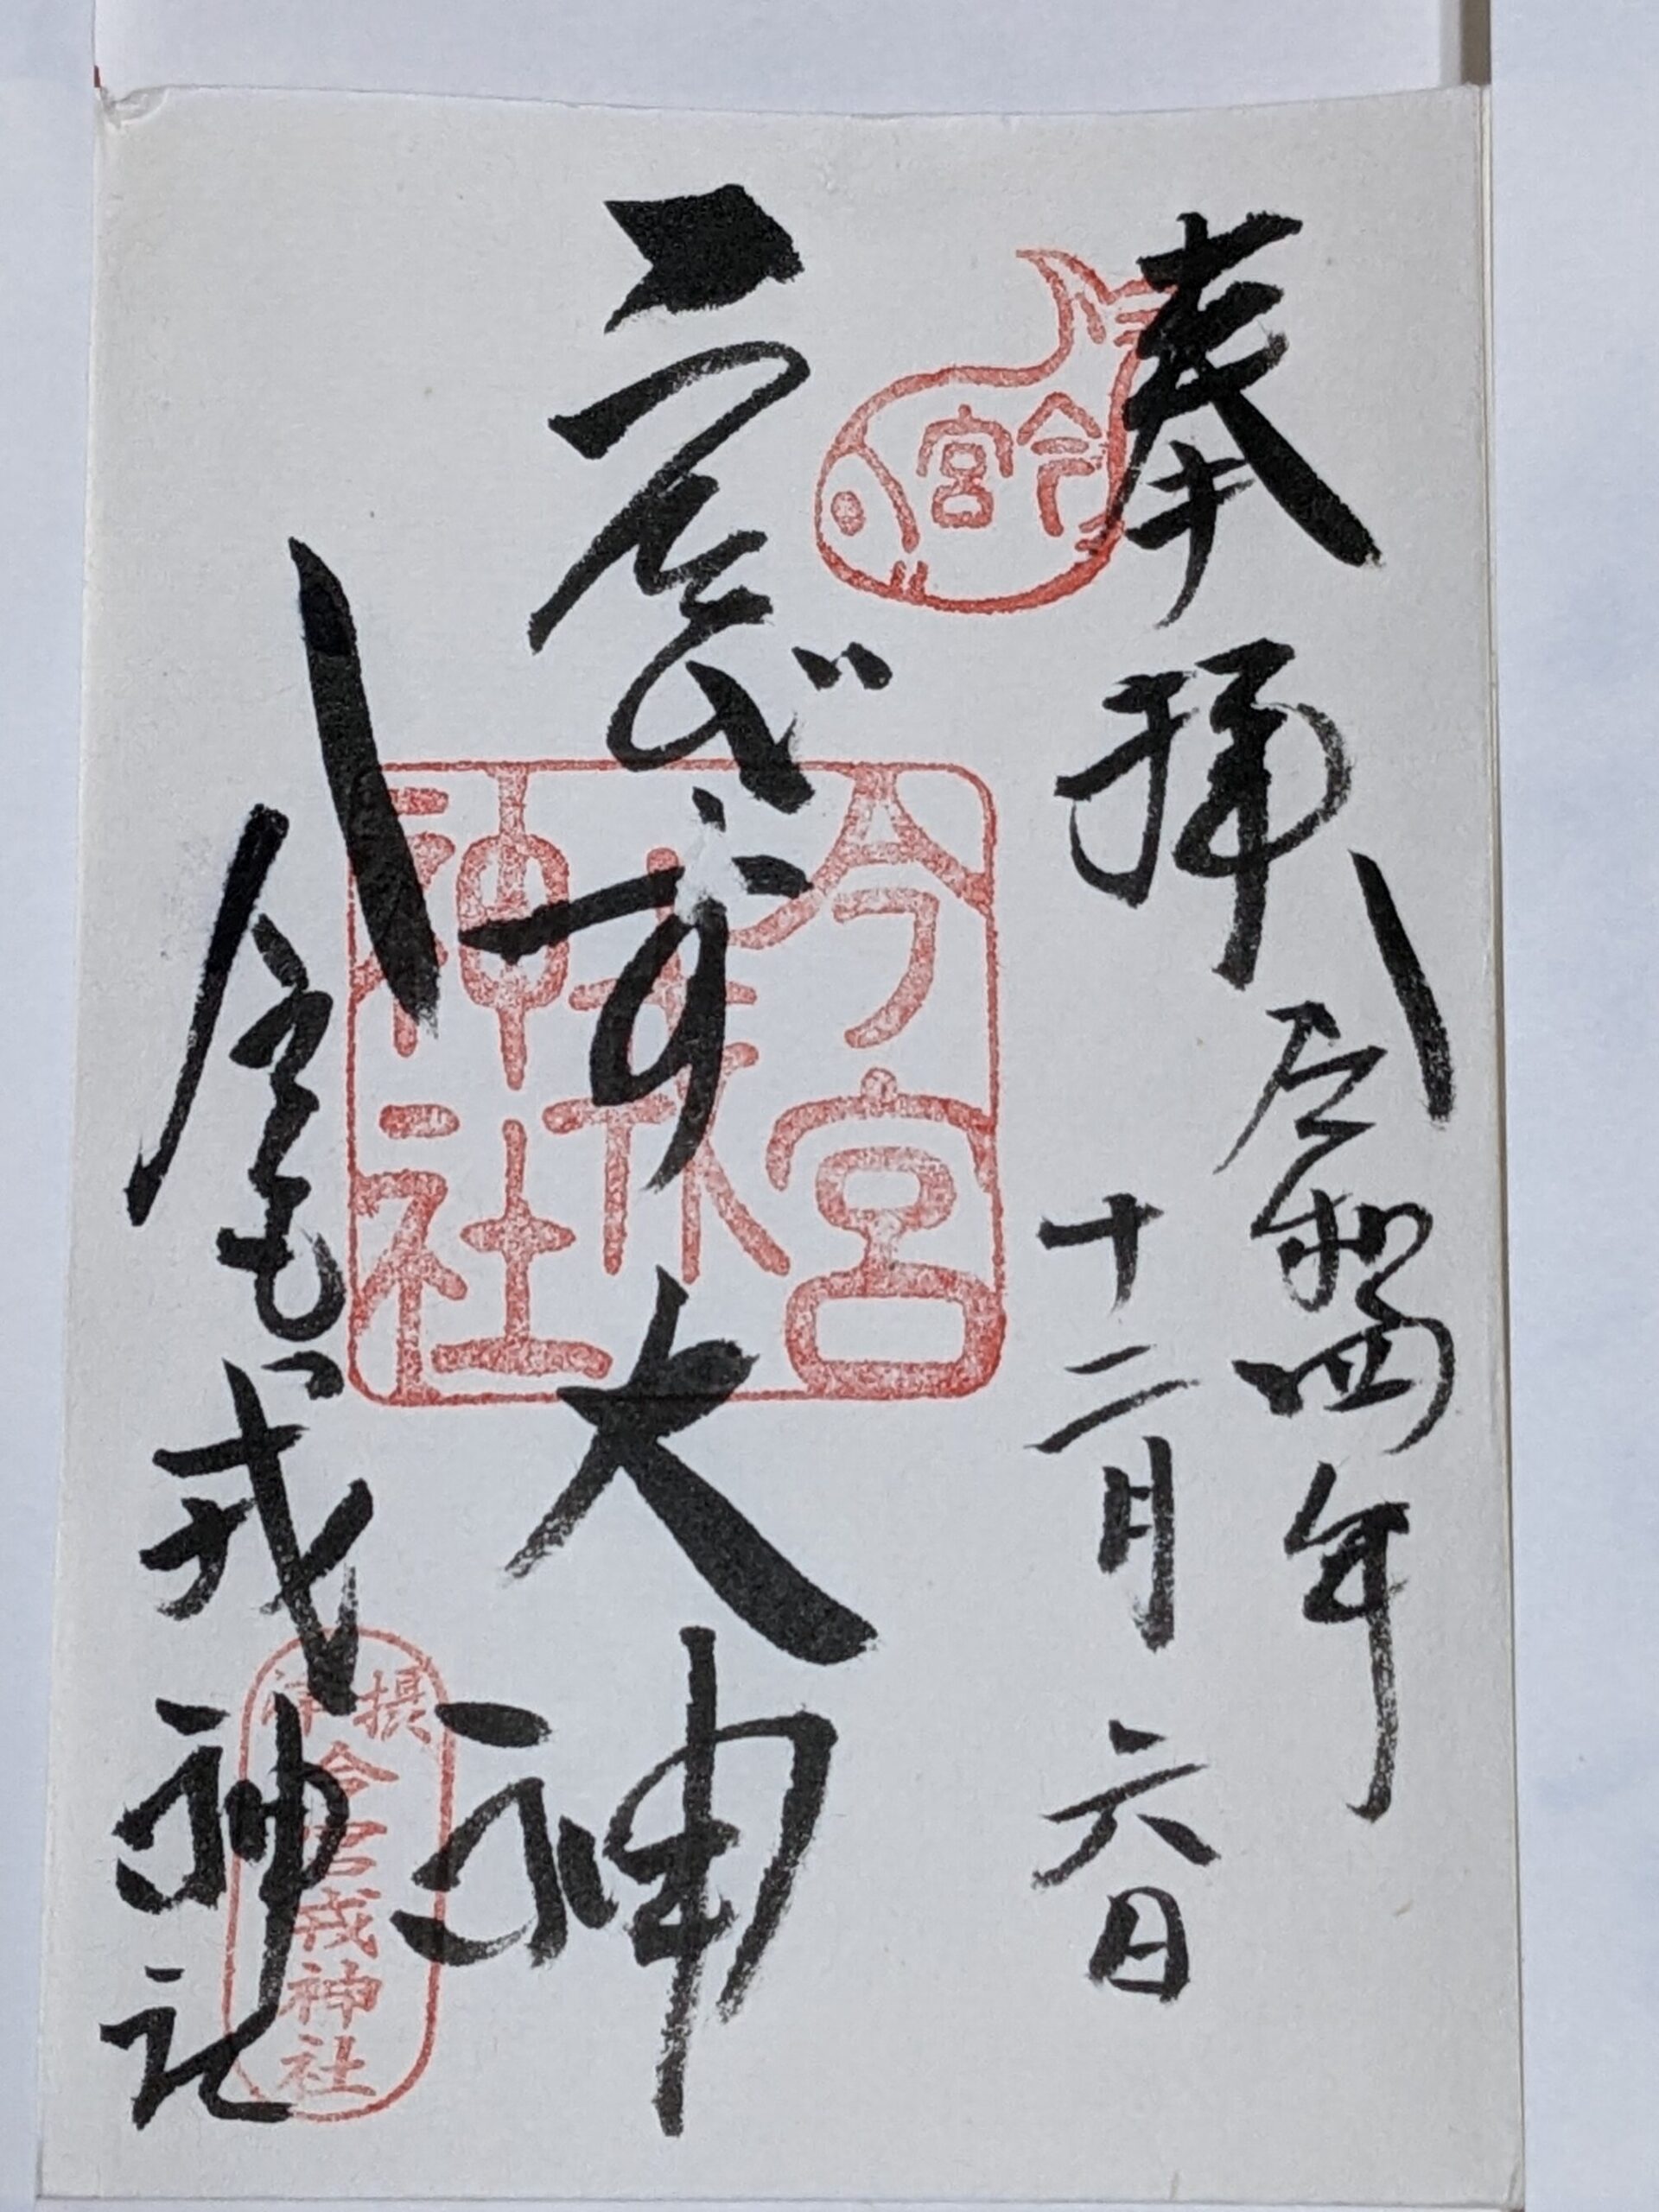 奉拝
令和四年
十二月六日
今宮
ゑびす大神
今宮戎神社
今宮戎神社
摂津
今宮戎神社